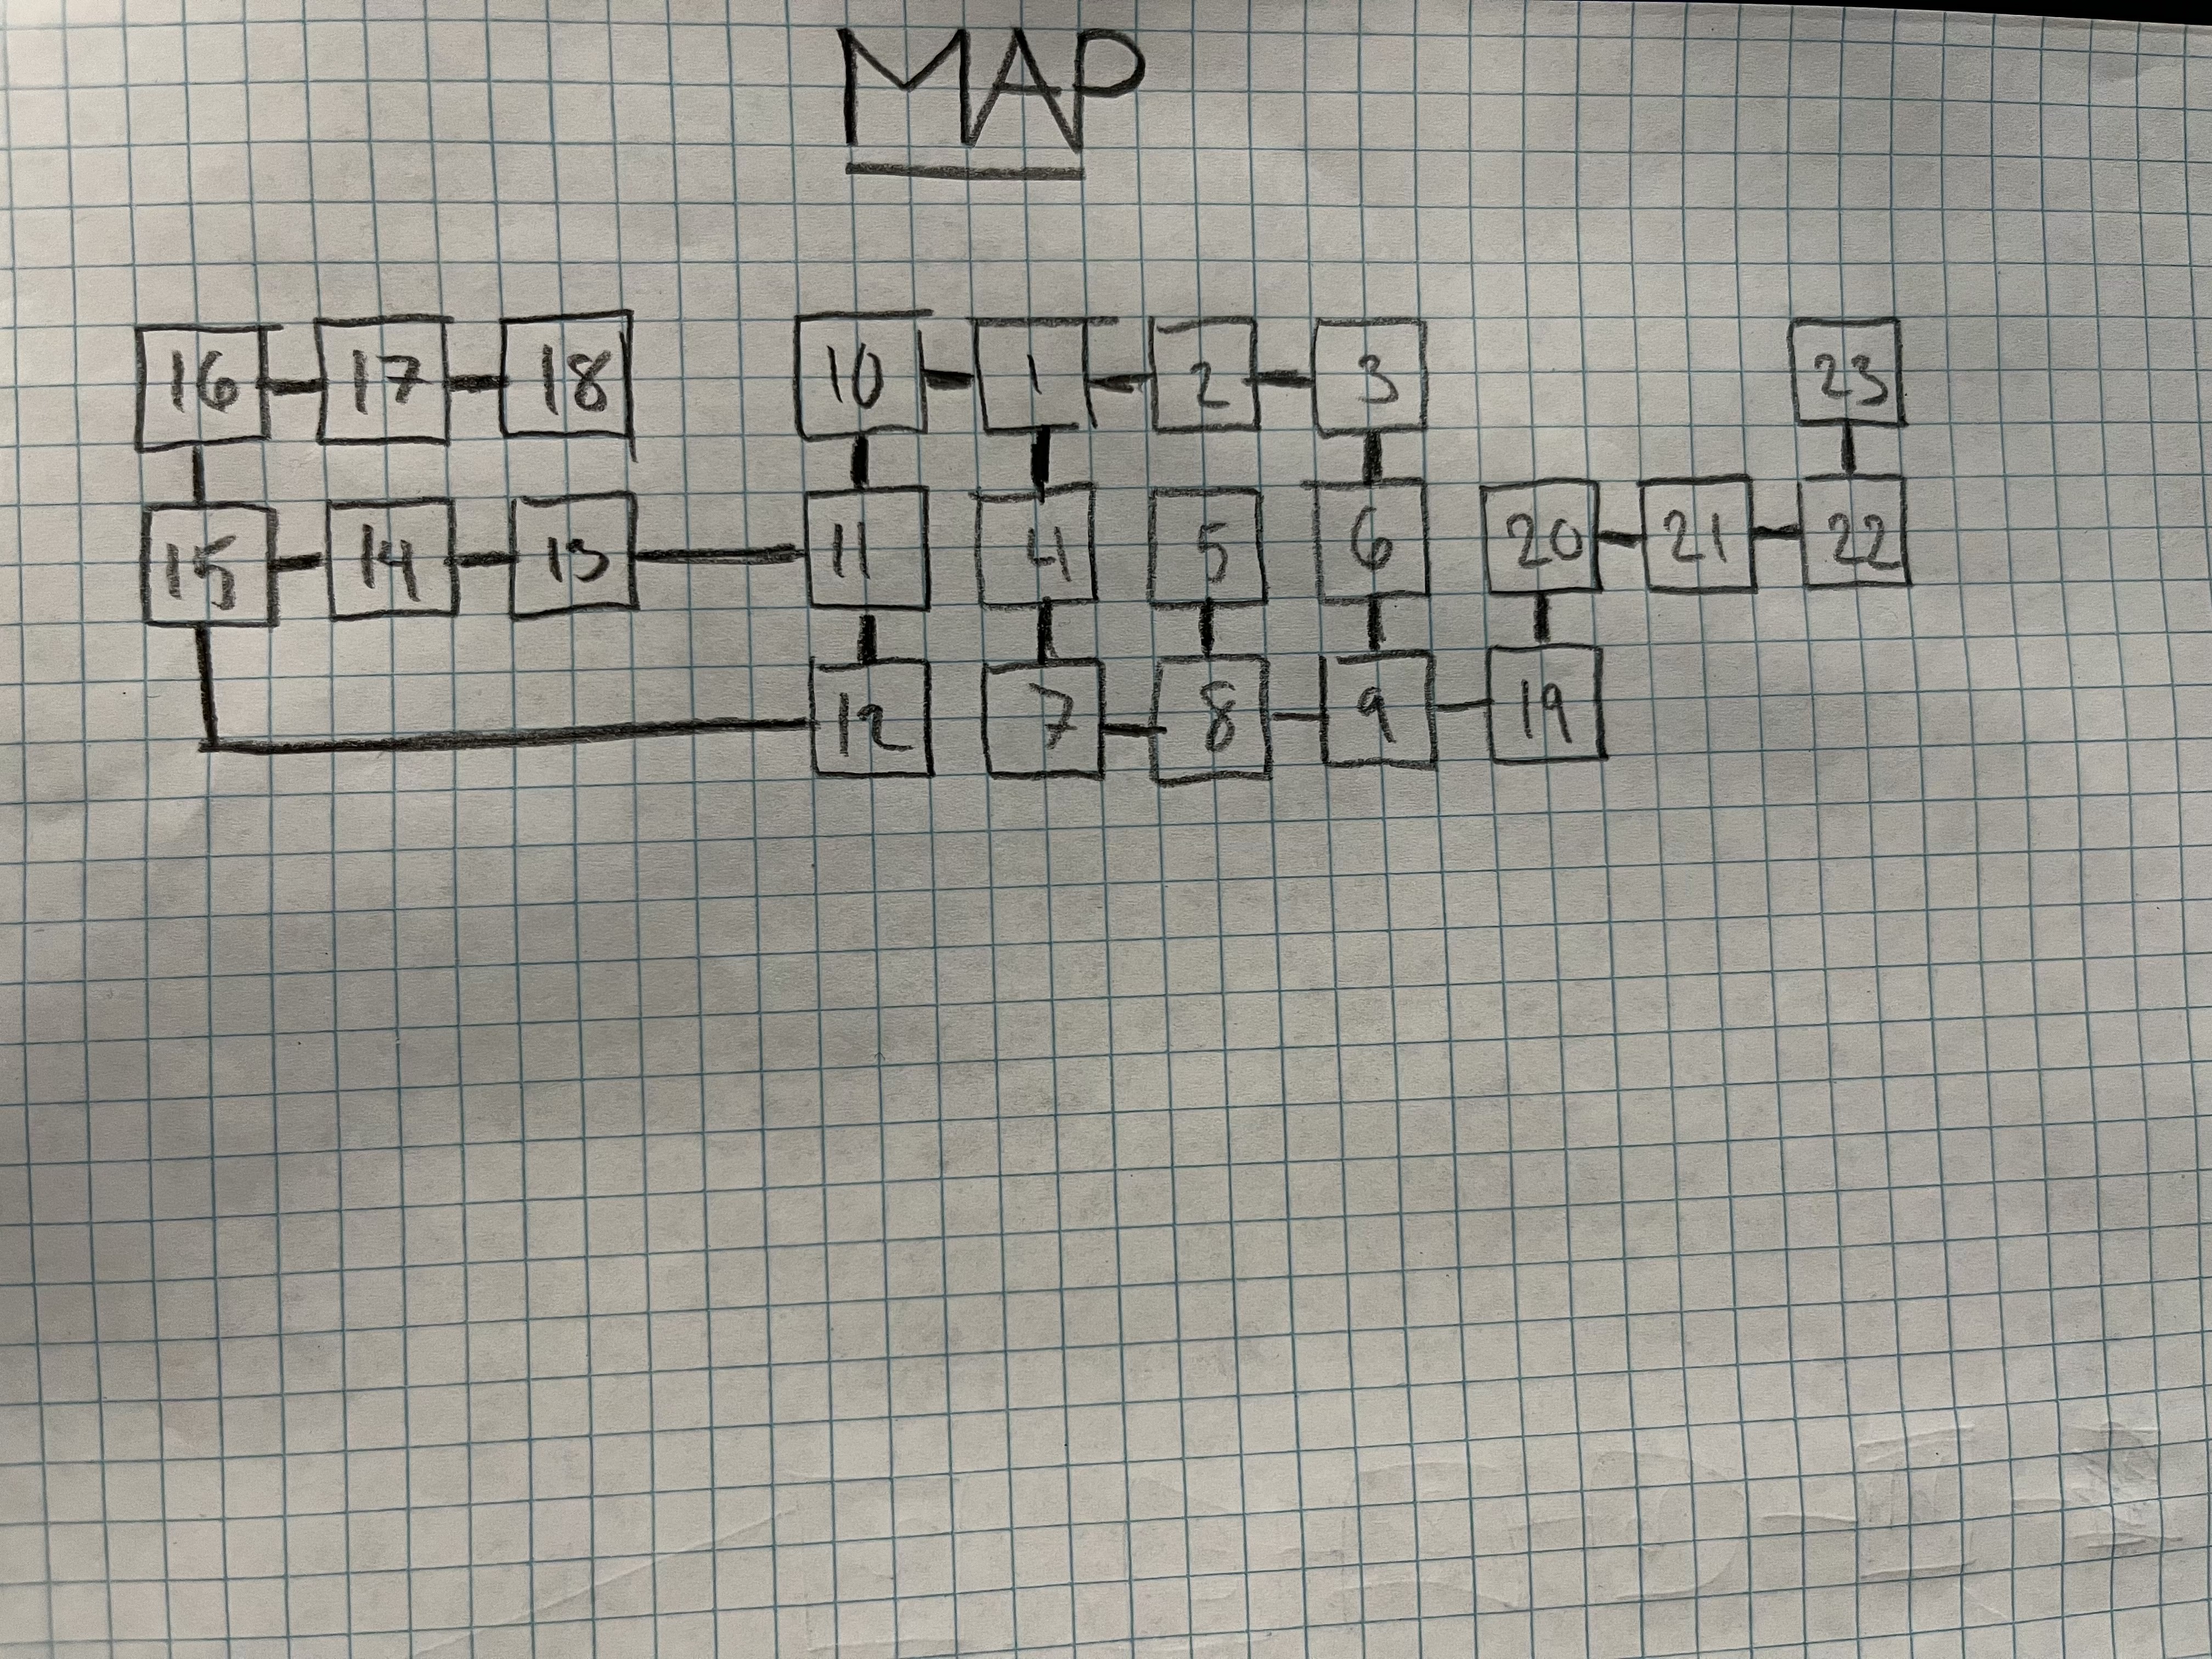 MAP
16 17 18 10 1 2 3 23
15 14 13 11 4 5 6 20 21 22
12 7 8 9 19